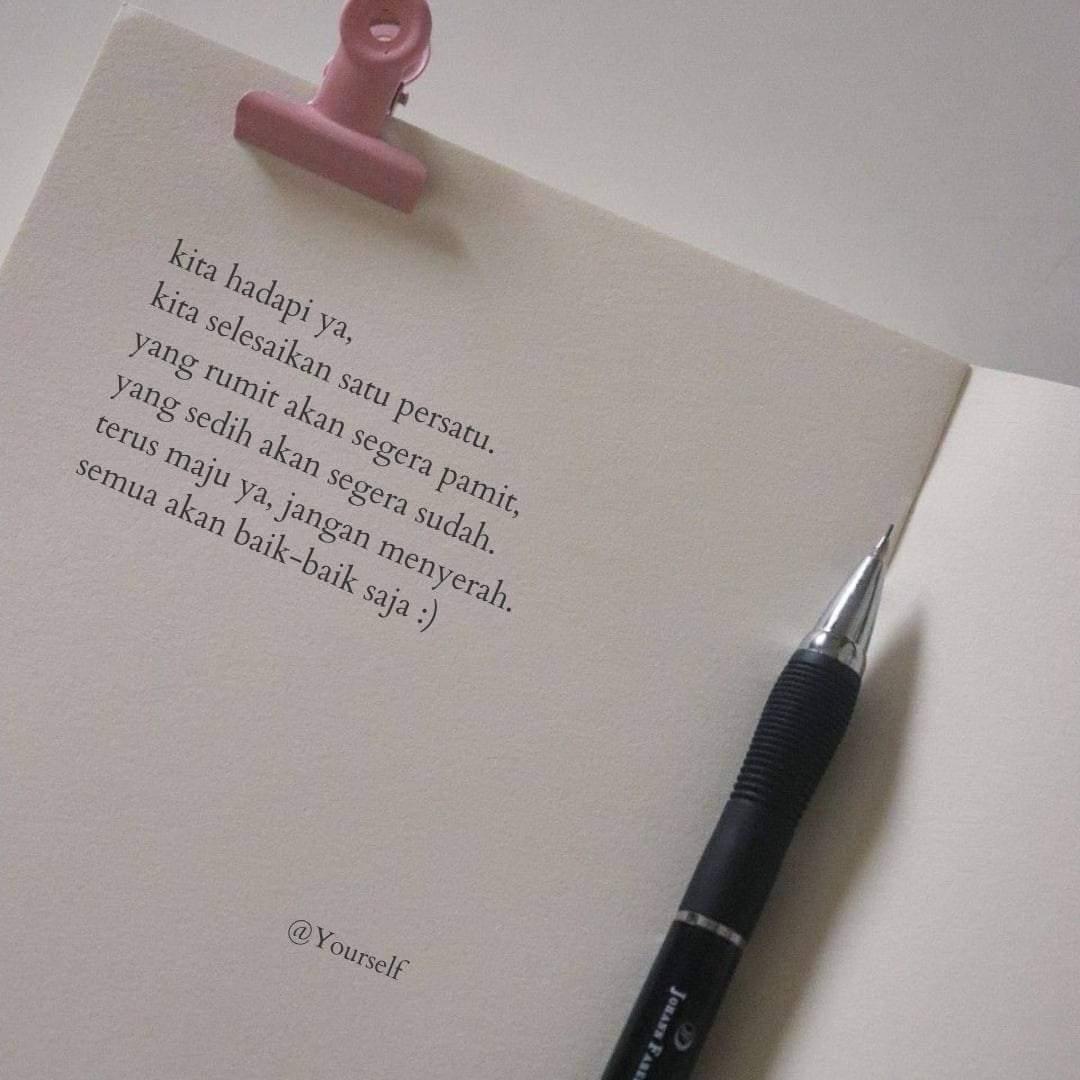 kita hadapi ya,
kita selesaikan satu persatu.
yang rumit akan segera pamit,
yang sedih akan segera sudah.
terus maju ya, jangan menyerah.
semua akan baik-baik saja :)
@Yourself
JOHANN